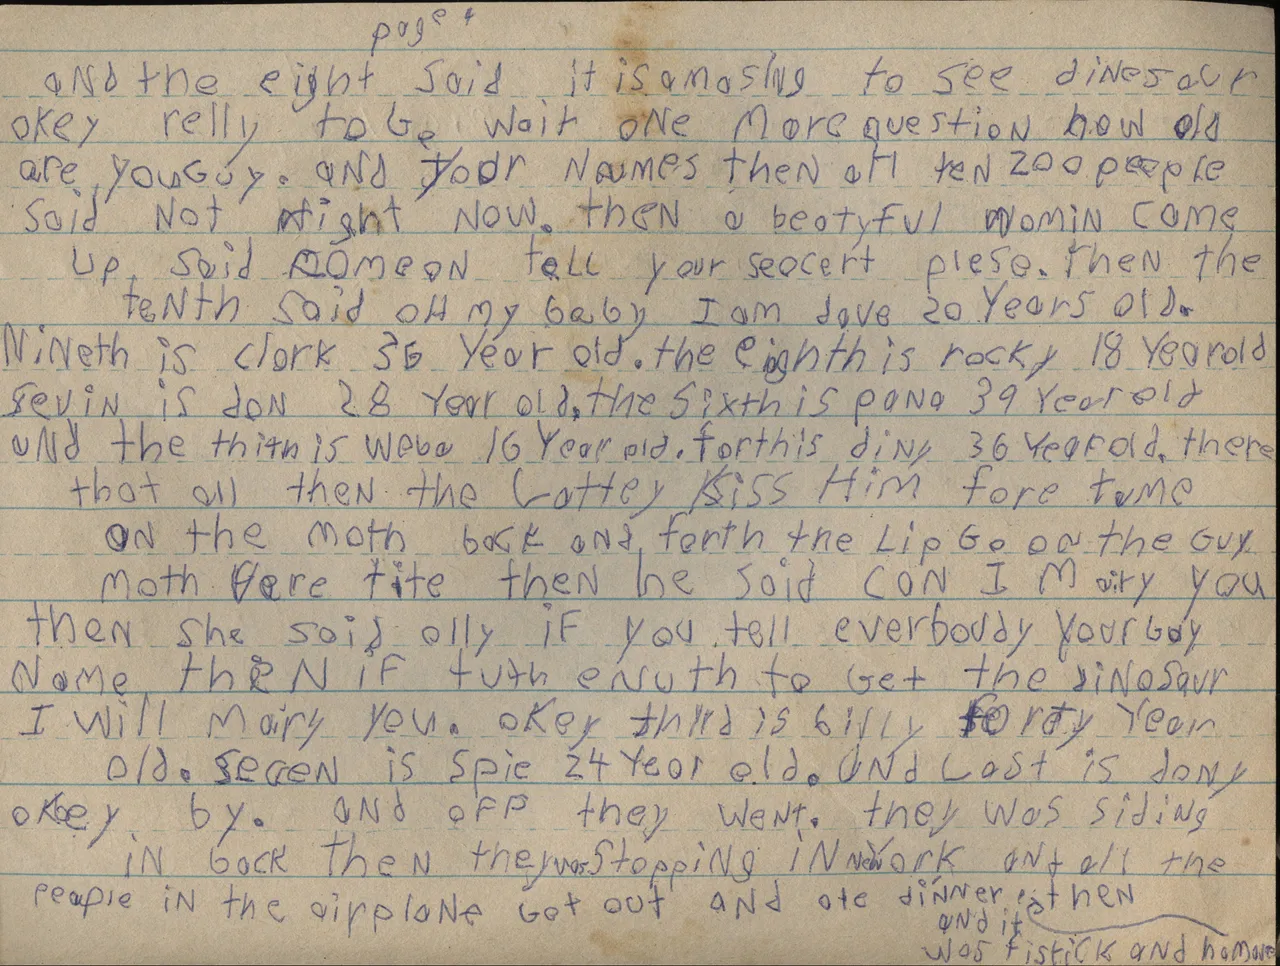 page 4
and the eight said it is amasing to see dinesaur
okey relly to Ge wait one more question how old
are you Guy. and your names then all ten 200 people
said not right now. then a beatyful womin came
up. said someon tell your seocert plese. then the
tenth said oh my baby I am dave 20 Years old.
Nineth is clark 36 Year old. the eighth is rocky 18 Year old
sevin is don 28 Year old. the sixth is pana 39 Year old
and the thith is weba 16 Year old. forth is diny 36 Year old. there
that all then the Lattey Kiss Him fore tame
on the moth back and forth the Lip Go on the Guy
moth Vere tite then he said can I Mairy you
then she said olly if you tell everboudy your Guy
Name then if tuth enuth to Get the dinosaur
I will Mairy you. okey third is billy forty Year
old. secen is Spie 24 Year old. and Last is dony
okey by. and off they went. they was siding
in back then they was Stopping in New York and all the
peaple in the airplane Got out and ate dinner. then
and it
was fistick and